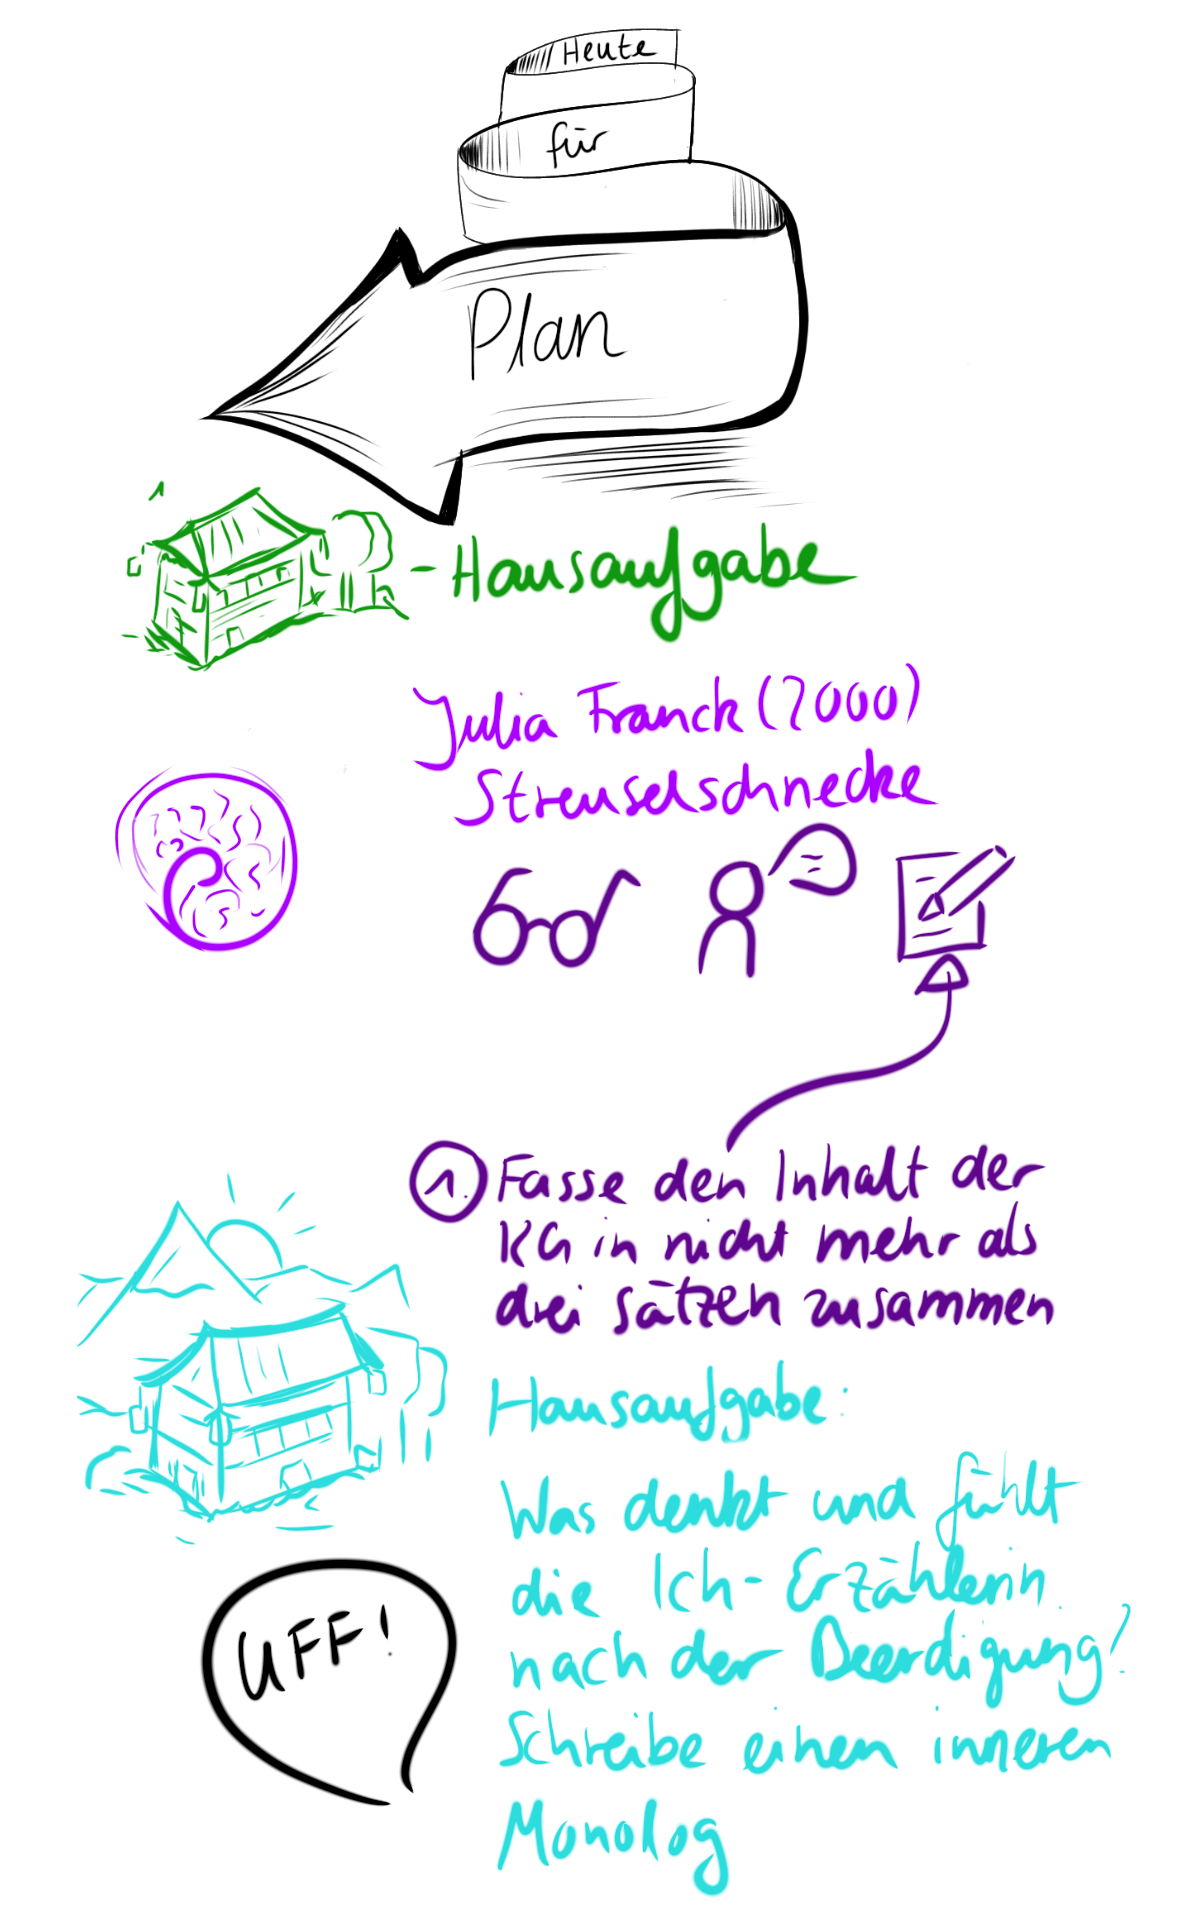 Heute
für
Plan
- Hausaufgabe
Julia Franck (2000)
Streuselschnecke
1. Fasse den Inhalt der
KG in nicht mehr als
drei Sätzen zusammen
Hausaufgabe:
Was denkt und fühlt
die Ich-Erzählerin
nach der Beerdigung?
Schreibe einen inneren
Monolog
UFF!